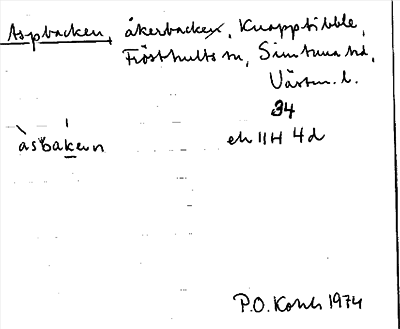 Aspbacken, åkerbacke, Knapptibble,
Frösthults sn, Simtuna hd,
Västm. l.
34
àsbaken ek 11H 4d
P.O. 1974